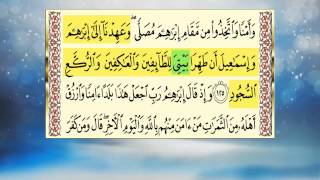 وَأَمْنًا وَٱتَّخِذُوا۟ مِن مَّقَامِ إِبْرَٰهِـۧمَ مُصَلًّى ۖ وَعَهِدْنَآ إِلَىٰٓ إِبْرَٰهِـۧمَ
وَإِسْمَٰعِيلَ أَن طَهِّرَا بَيْتِىَ لِلطَّآئِفِينَ وَٱلْعَٰكِفِينَ وَٱلرُّكَّعِ
ٱلسُّجُودِ ١٢٥ وَإِذْ قَالَ إِبْرَٰهِـۧمُ رَبِّ ٱجْعَلْ هَٰذَا بَلَدًا ءَامِنًا وَٱرْزُقْ
أَهْلَهُۥ مِنَ ٱلثَّمَرَٰتِ مَنْ ءَامَنَ مِنْهُم بِٱللَّهِ وَٱلْيَوْمِ ٱلْـَٔاخِرِ ۖ قَالَ وَمَن كَفَرَ